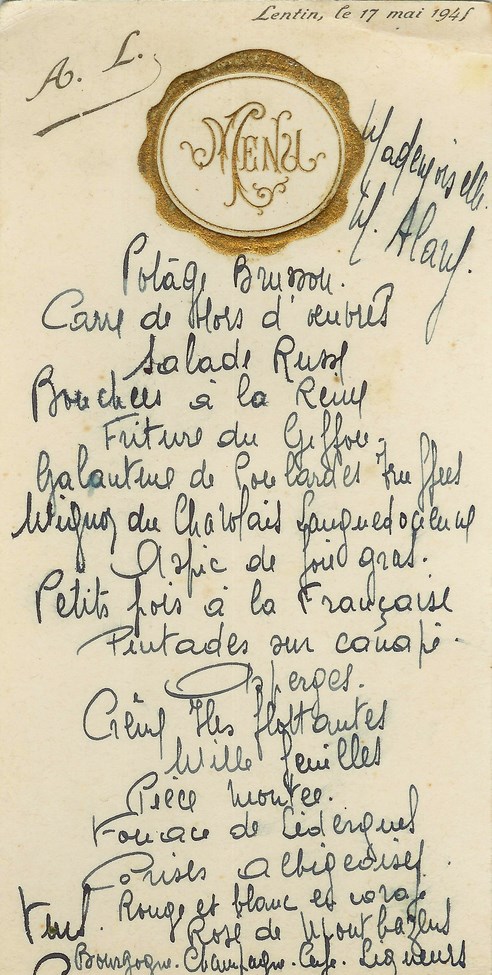 Lentin, le 17 mai 1945
A. L.
MENU
Mademoiselle
M. Alary
Potage Brusson.
Carré de Hors d'œuvres
Salade Russe
Bouchées à la Reine
Friture du Giffou.
Galantine de Poulardes Truffées
Mignon du Charolais Languedocienne
Aspic de foie gras.
Petits pois à la Française
Pintades sur canapé.
Asperges.
Crème Iles flottantes
Mille feuilles
Pièce montée.
Fouace de Lédergues
Cerises albigeoises.
Vins. Rouge et blanc en carafe
Rosé de Montbazens
Bourgogne. Champagne. Café. Liqueurs